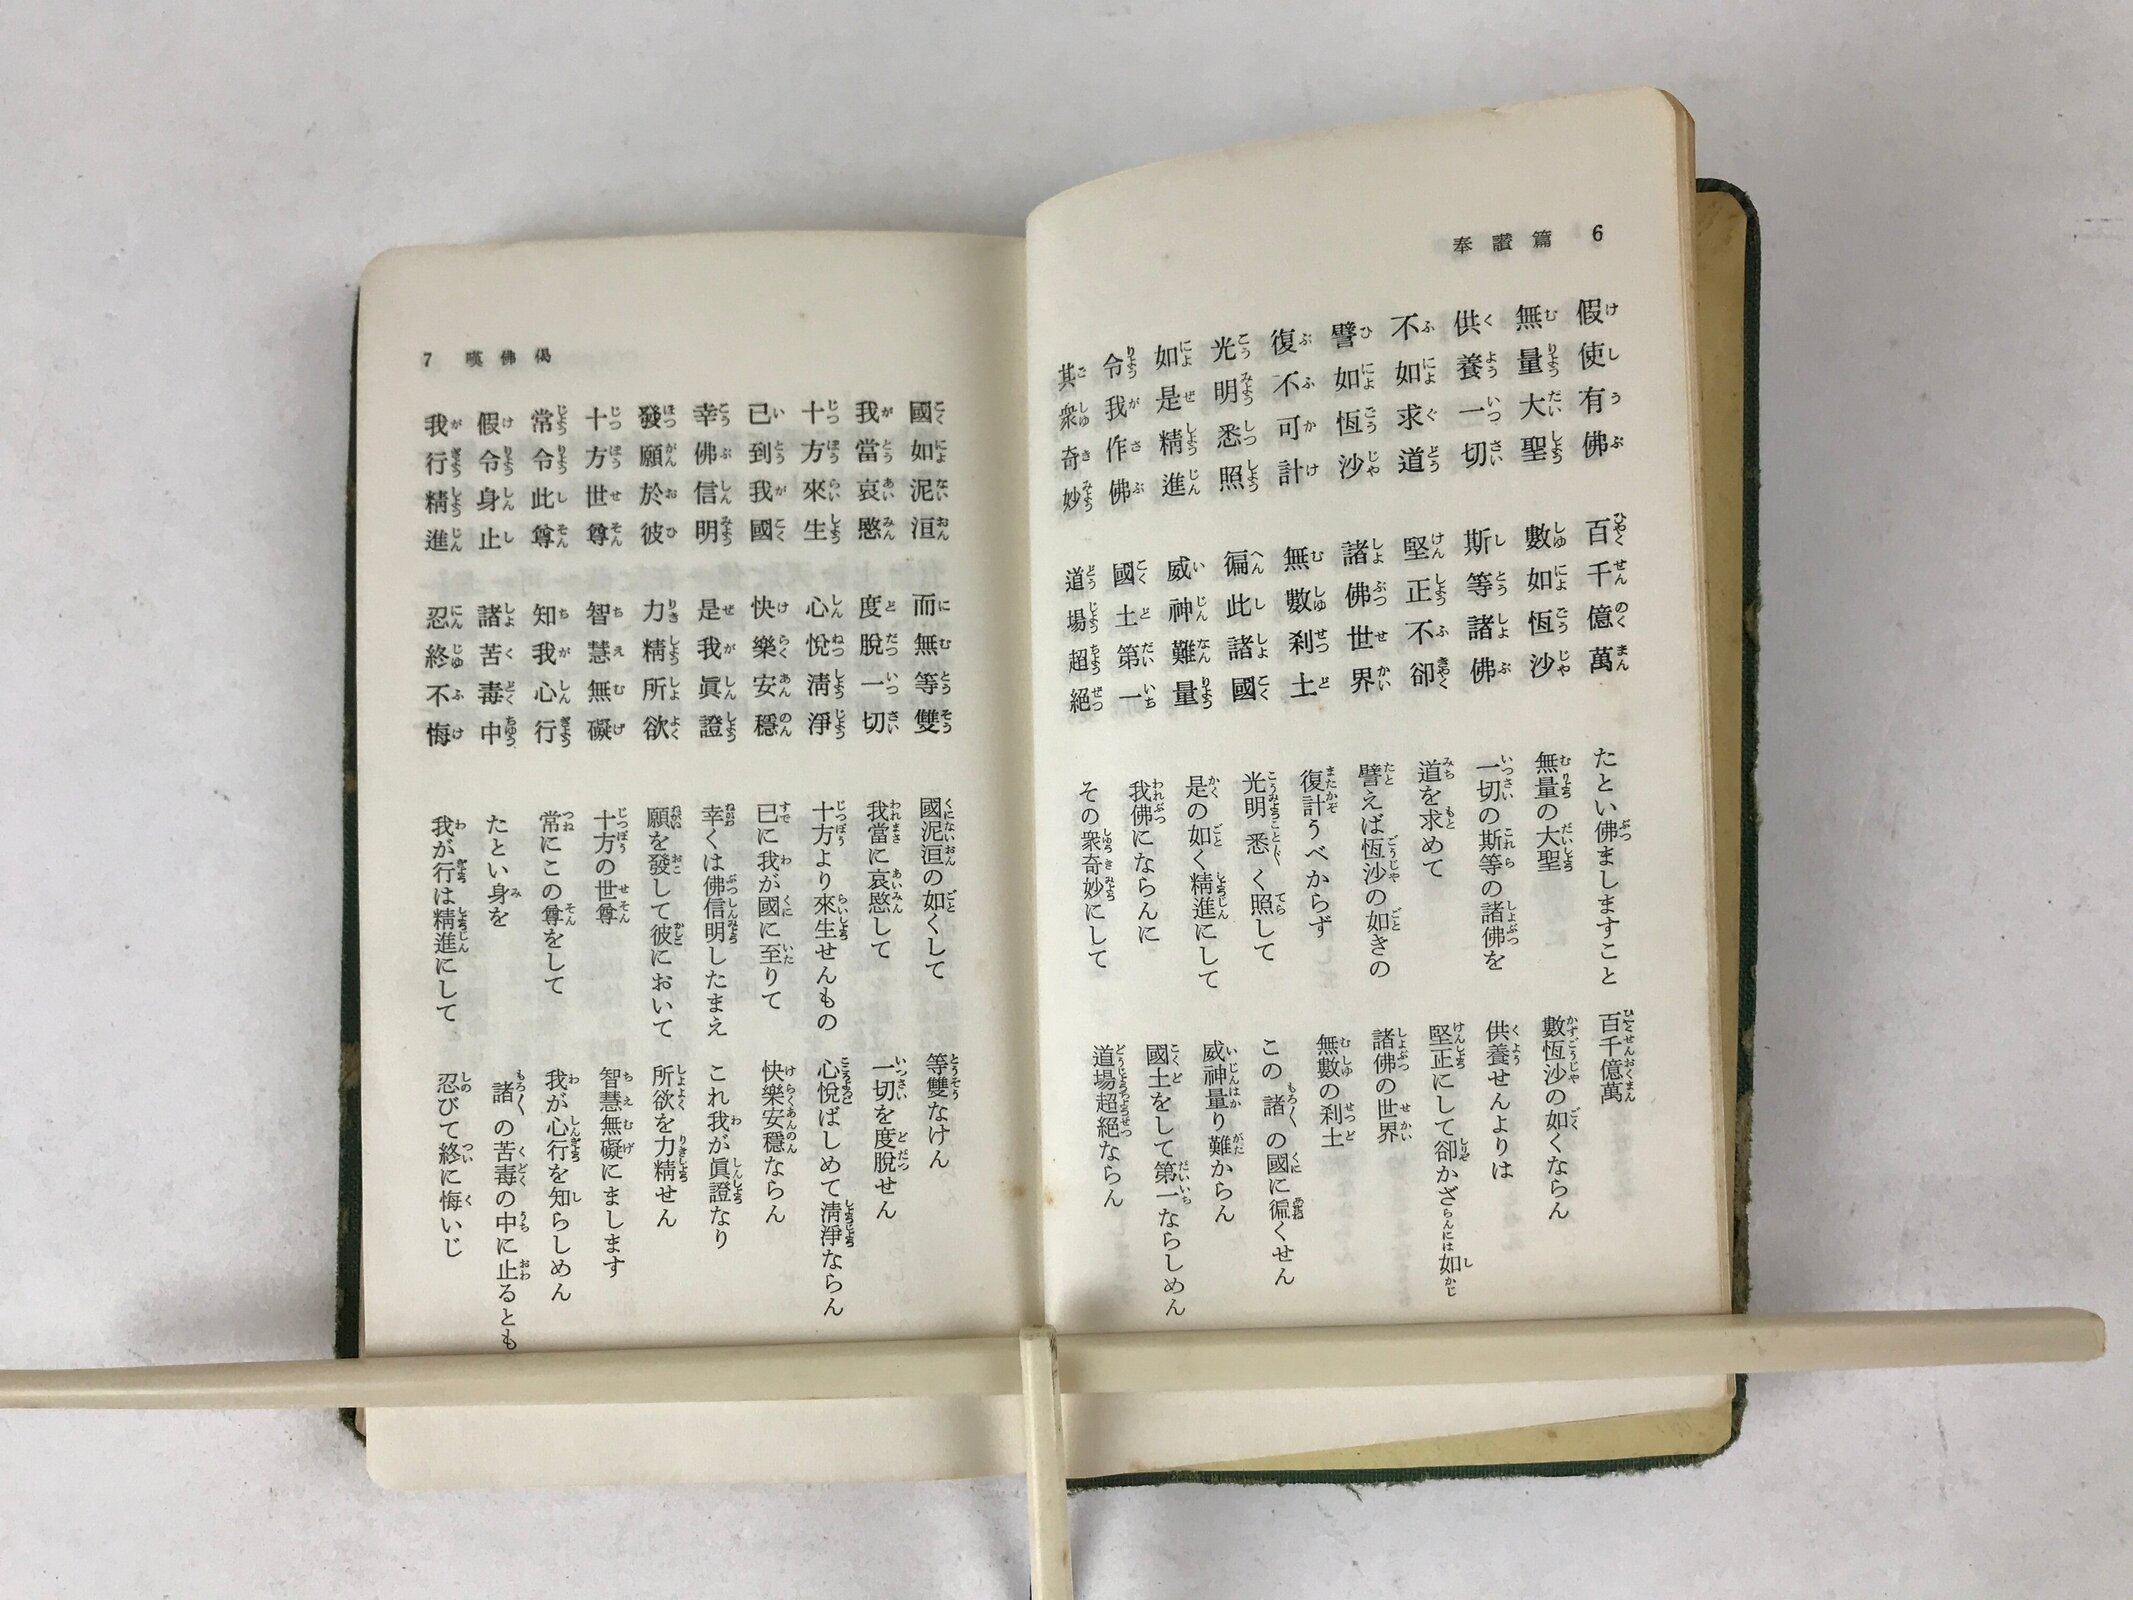 6 奉讃篇
假使有佛 百千億萬 たとい佛ましますこと 百千億萬
無量大聖 數如恆沙 無量の大聖 數恆沙の如くならん
供養一切 斯等諸佛 一切の斯等の諸佛を 供養せんよりは
不如求道 堅正不卻 道を求めて 堅正にして卻かざらんには如かじ
譬如恆沙 諸佛世界 譬えば恆沙の如きの 諸佛の世界
復不可計 無數刹土 復計うべからず 無數の刹土
光明悉照 徧此諸國 光明悉く照して この諸〱の國に徧くせん
如是精進 威神難量 是の如く精進にして 威神量り難からん
令我作佛 國土第一 我佛にならんに 國土をして第一ならしめん
其衆奇妙 道場超絕 その衆奇妙にして 道場超絕ならん
7 嘆佛偈
國如泥洹 而無等雙 國泥洹の如くして 等雙なけん
我當哀愍 度脫一切 我當に哀愍して 一切を度脫せん
十方來生 心悅淸淨 十方より來生せんもの 心悅ばしめて淸淨ならん
已到我國 快樂安穩 已に我が國に至りて 快樂安穩ならん
幸佛信明 是我眞證 幸くは佛信明したまえ これ我が眞證なり
發願於彼 力精所欲 願を發して彼において 所欲を力精せん
十方世尊 智慧無礙 十方の世尊 智慧無礙にまします
常令此尊 知我心行 常にこの尊をして 我が心行を知らしめん
假令身止 諸苦毒中 たとい身を 諸〱の苦毒の中に止るとも
我行精進 忍終不悔 我が行は精進にして 忍びて終に悔いじ